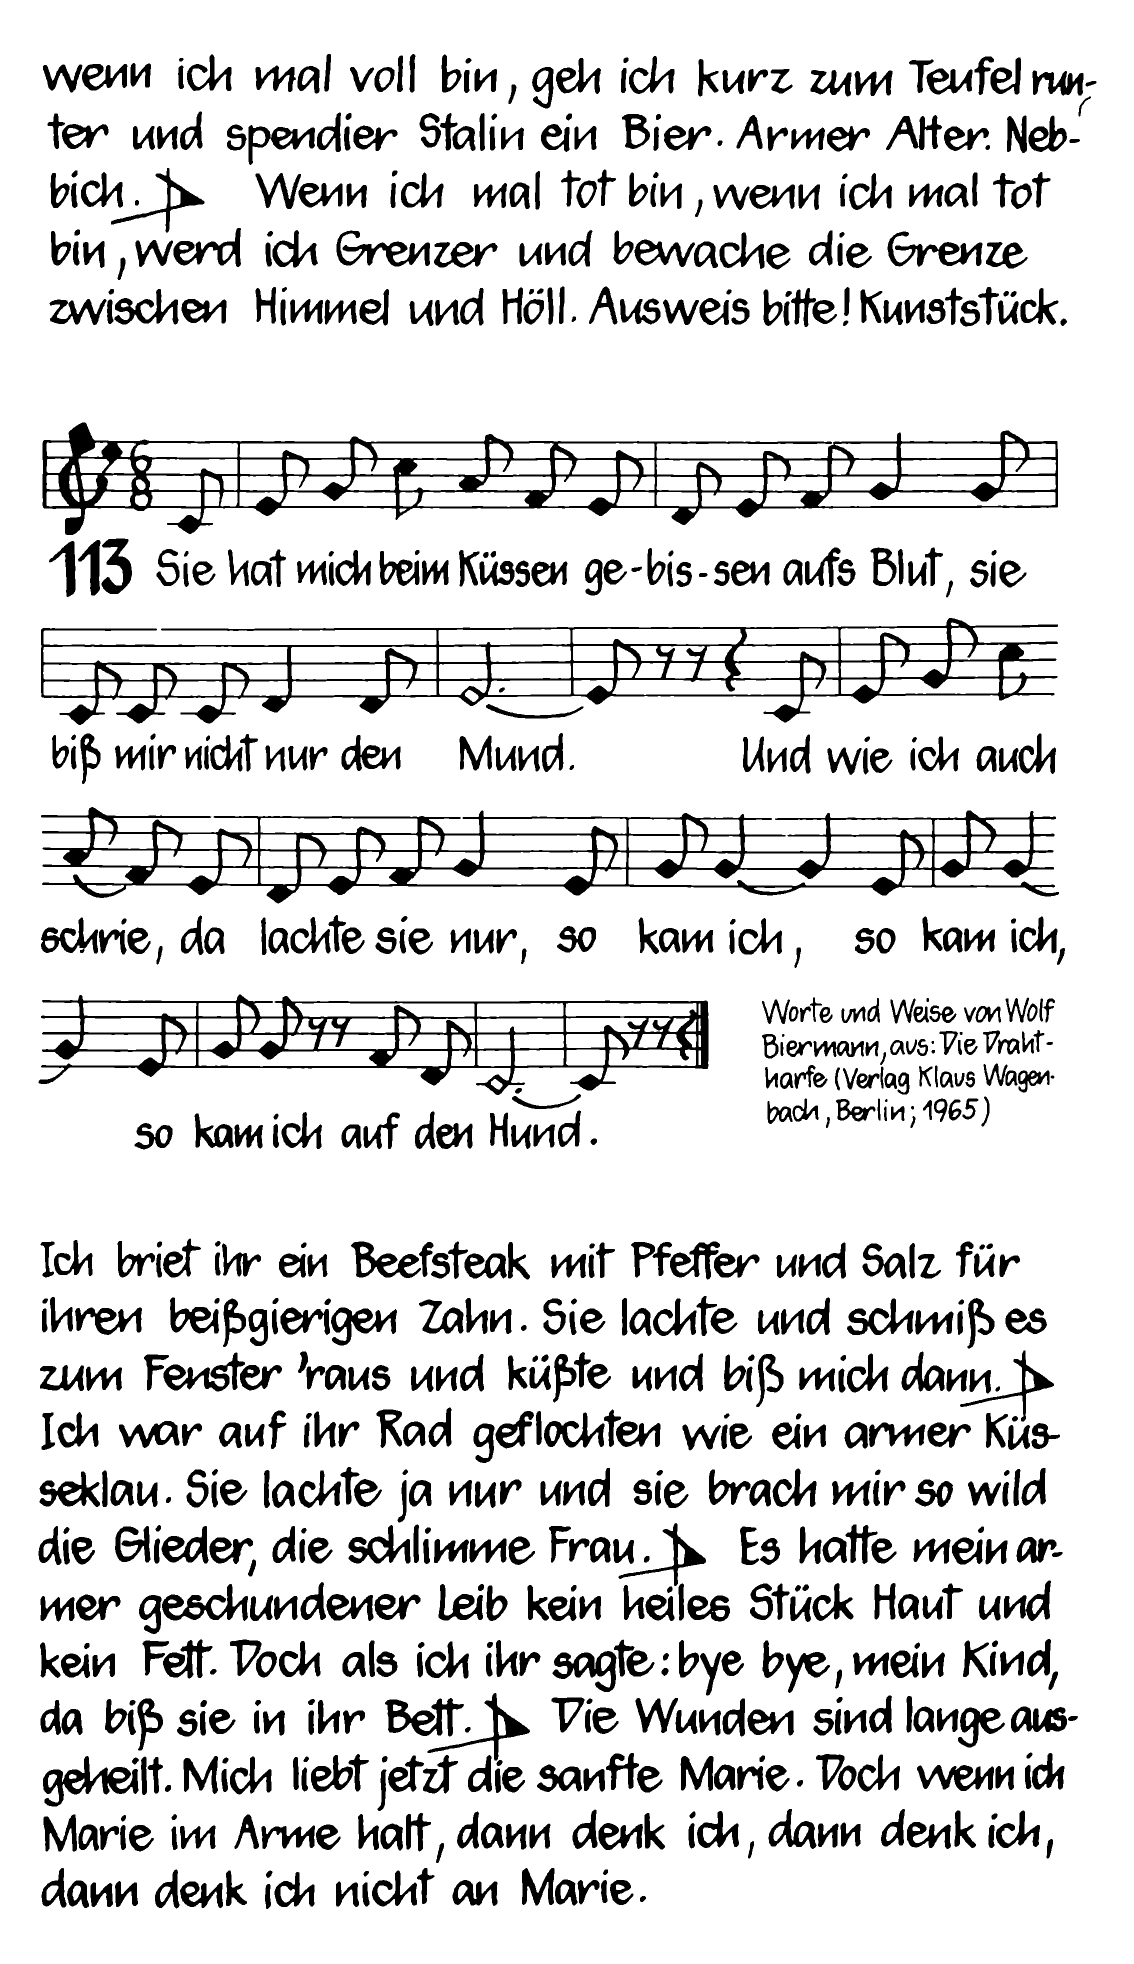 wenn ich mal voll bin, geh ich kurz zum Teufel run-
ter und spendier Stalin ein Bier. Armer Alter. Neb-
bich. Wenn ich mal tot bin, wenn ich mal tot
bin, werd ich Grenzer und bewache die Grenze
zwischen Himmel und Höll. Ausweis bitte! Kunststück.
6
8
8
113 Sie hat mich beim Küssen ge-bis-sen aufs Blut, sie
biß mir nicht nur den Mund. Und wie ich auch
schrie, da lachte sie nur, so kam ich, so kam ich,
so kam ich auf den Hund.
Worte und Weise von Wolf
Biermann, aus: Die Draht-
harfe (Verlag Klaus Wagen-
bach, Berlin; 1965)
Ich briet ihr ein Beefsteak mit Pfeffer und Salz für
ihren beißgierigen Zahn. Sie lachte und schmiß es
zum Fenster 'raus und küßte und biß mich dann.
Ich war auf ihr Rad geflochten wie ein armer Küs-
seklau. Sie lachte ja nur und sie brach mir so wild
die Glieder, die schlimme Frau. Es hatte mein ar-
mer geschundener Leib kein heiles Stück Haut und
kein Fett. Doch als ich ihr sagte: bye bye, mein Kind,
da biß sie in ihr Bett. Die Wunden sind lange aus-
geheilt. Mich liebt jetzt die sanfte Marie. Doch wenn ich
Marie im Arme halt, dann denk ich, dann denk ich,
dann denk ich nicht an Marie.